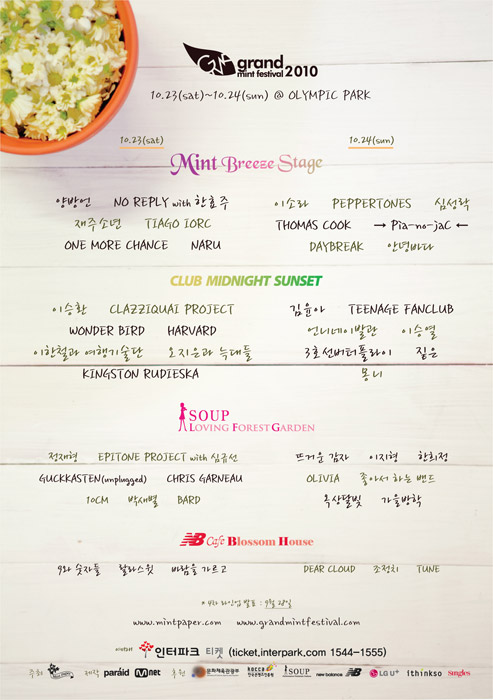 grand
mint festival 2010
10.23(sat)~10.24(sun) @ OLYMPIC PARK
10.23(sat) 10.24(sun)
Mint Breeze Stage
양방언 NO REPLY with 한효주 이소라 PEPPERTONES 심성락
재주소년 TIAGO IORC THOMAS COOK → Pia-no-jaC ←
ONE MORE CHANCE NARU DAYBREAK 안녕바다
CLUB MIDNIGHT SUNSET
이승환 CLAZZIQUAI PROJECT 김윤아 TEENAGE FANCLUB
WONDER BIRD HARVARD 언니네이발관 이승열
이한철과 여행기술단 오지은과 늑대들 3호선버터플라이 짙은
KINGSTON RUDIESKA 몽니
SOUP
LOVING FOREST GARDEN
정재형 EPITONE PROJECT with 심규선 뜨거운 감자 이지형 한희정
GUCKKASTEN(unplugged) CHRIS GARNEAU OLIVIA 좋아서 하는 밴드
10CM 박새별 BARD 옥상달빛 가을방학
NB Cafe Blossom House
9와 숫자들 랄라스윗 바람을 가르고 DEAR CLOUD 조정치 TUNE
* 4차 라인업 발표 : 9월 28일
www.mintpaper.com www.grandmintfestival.com
예매처 인터파크 티켓 (ticket.interpark.com 1544-1555)
주최 제작 paraid Mnet 후원 문화체육관광부 kocca 한국콘텐츠진흥원 SOUP new balance LG U+ ithinkso singles